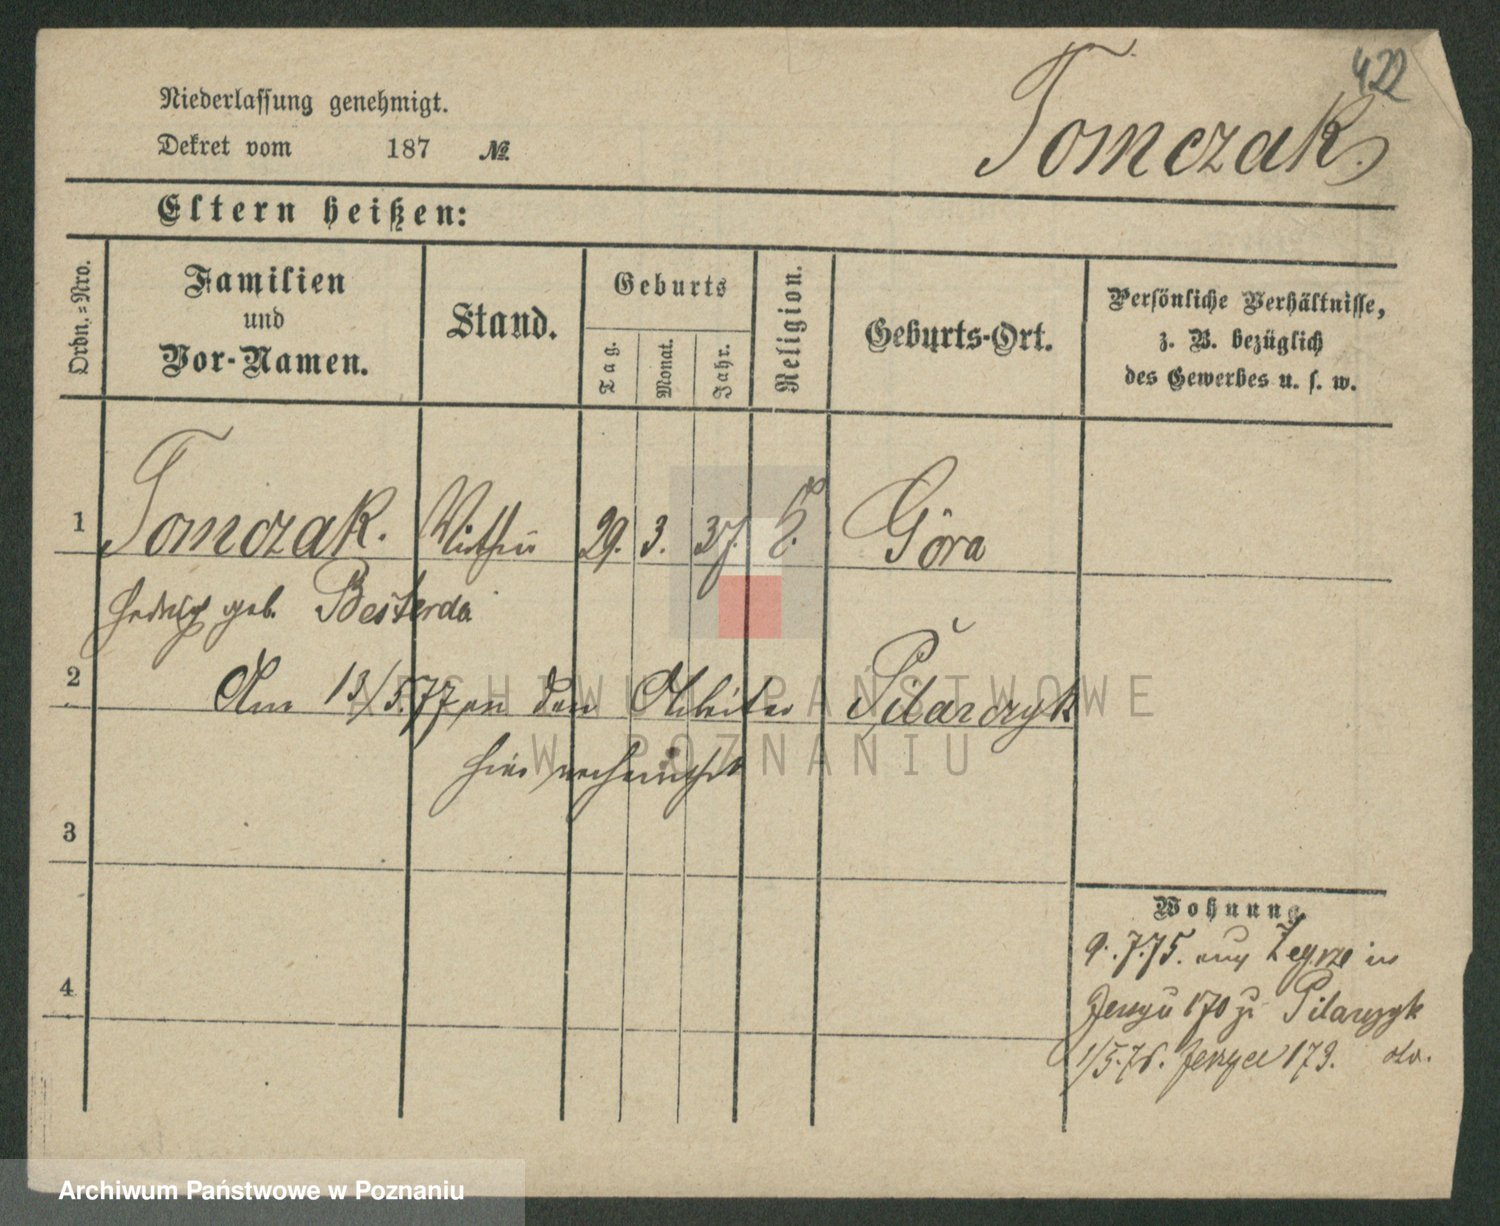 422
Tomczak.
Niederlassung genehmigt.
Dekret vom 187 №.
Eltern heißen:
Ordn.=Nro.
Familien
und
Vor-Namen.
Stand.
Geburts
Tag.
Monat.
Jahr.
Religion.
Geburts-Ort.
Persönliche Verhältnisse,
z. B. bezüglich
des Gewerbes u. s. w.
1 Tomczak. 29. 3. 37. Góra
Hedwig geb. Besterda
2 Am 13/5.77 an den Arbeiter Pilarczyk
hier verheirathet
3
4
Wohnung
9.7.75. aus Zegrze in
Jerzyce 170 zu Pilarczyk
1/5.76. Jerzyce 179. do.
ARCHIWUM PAŃSTWOWE
W POZNANIU
Archiwum Państwowe w Poznaniu